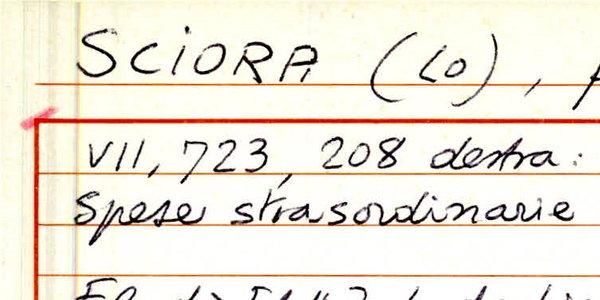 SCIORA (LO),
VII, 723, 208 destra:
Spese strasordinarie